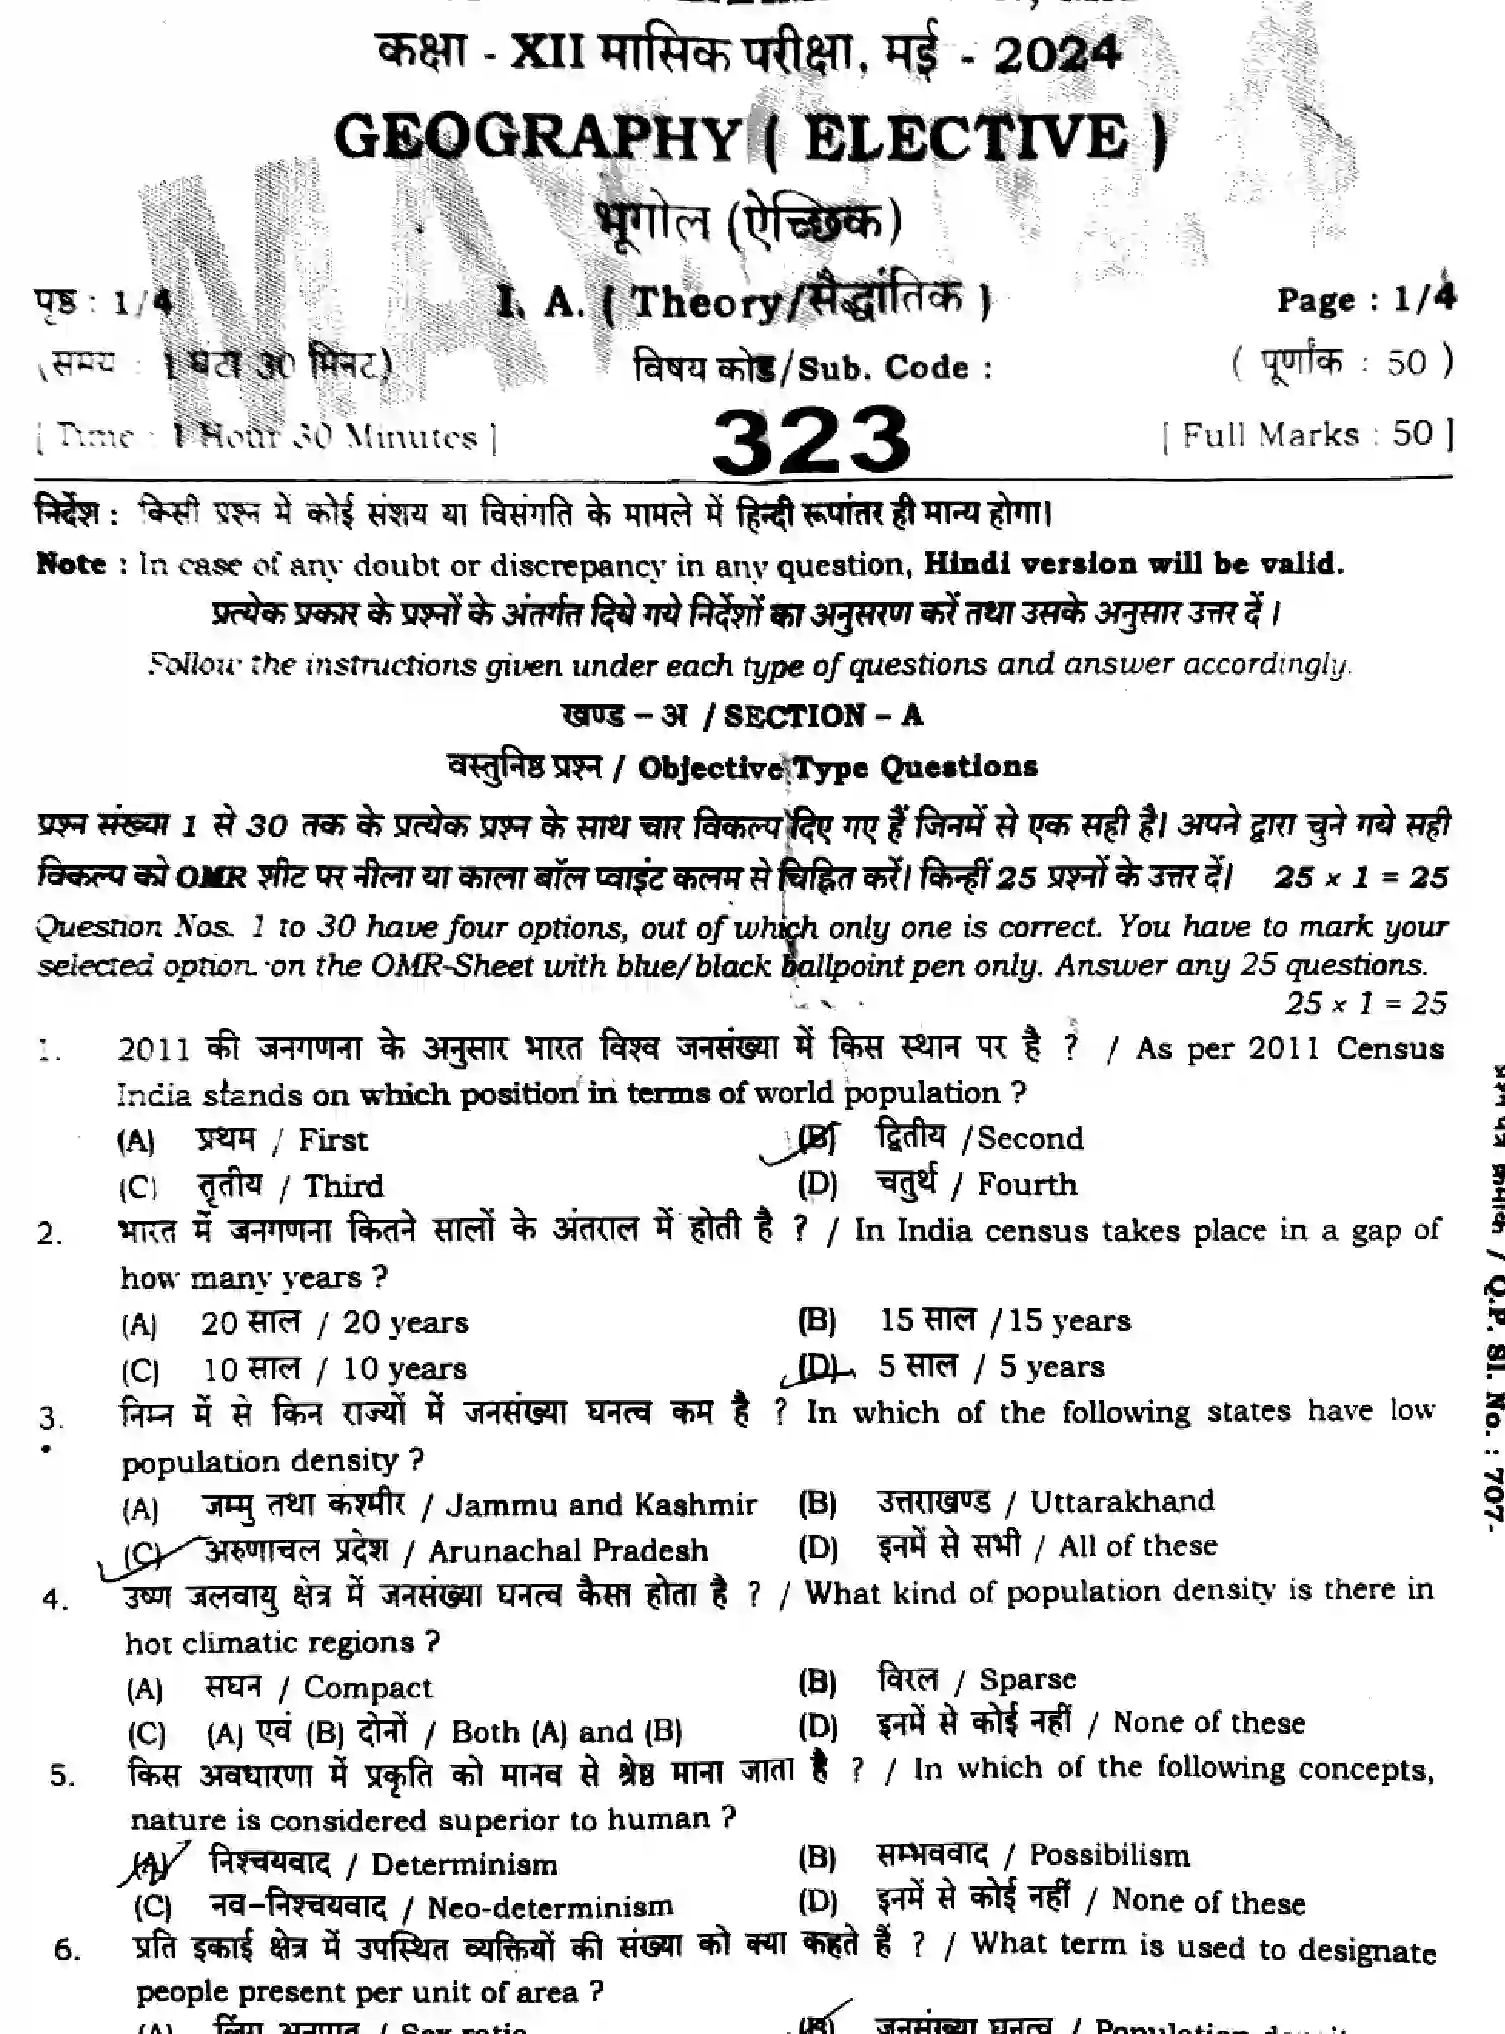 कक्षा - XII मासिक परीक्षा, मई - 2024
GEOGRAPHY ( ELECTIVE )
भूगोल (ऐच्छिक)
पृष्ठ : 1/4 I. A. ( Theory/सैद्धांतिक ) Page : 1/4
(समय : 1 घंटा 30 मिनट) विषय कोड/Sub. Code : ( पूर्णांक : 50 )
[ Time : 1 Hour 30 Minutes ] 323 [ Full Marks : 50 ]
निर्देश : किसी प्रश्न में कोई संशय या विसंगति के मामले में हिन्दी रूपांतर ही मान्य होगा।
Note : In case of any doubt or discrepancy in any question, Hindi version will be valid.
प्रत्येक प्रकार के प्रश्नों के अंतर्गत दिये गये निर्देशों का अनुसरण करें तथा उसके अनुसार उत्तर दें।
Follow the instructions given under each type of questions and answer accordingly.
खण्ड – अ / SECTION – A
वस्तुनिष्ठ प्रश्न / Objective Type Questions
प्रश्न संख्या 1 से 30 तक के प्रत्येक प्रश्न के साथ चार विकल्प दिए गए हैं जिनमें से एक सही है। अपने द्वारा चुने गये सही
विकल्प को OMR शीट पर नीला या काला बॉल प्वाइंट कलम से चिह्नित करें। किन्हीं 25 प्रश्नों के उत्तर दें। 25 × 1 = 25
Question Nos. 1 to 30 have four options, out of which only one is correct. You have to mark your
selected option on the OMR-Sheet with blue/black ballpoint pen only. Answer any 25 questions.
25 × 1 = 25
1. 2011 की जनगणना के अनुसार भारत विश्व जनसंख्या में किस स्थान पर है ? / As per 2011 Census
India stands on which position in terms of world population ?
(A) प्रथम / First (B) द्वितीय /Second
(C) तृतीय / Third (D) चतुर्थ / Fourth
2. भारत में जनगणना कितने सालों के अंतराल में होती है ? / In India census takes place in a gap of
how many years ?
(A) 20 साल / 20 years (B) 15 साल /15 years
(C) 10 साल / 10 years (D) 5 साल / 5 years
3. निम्न में से किन राज्यों में जनसंख्या घनत्व कम है ? In which of the following states have low
population density ?
(A) जम्मु तथा कश्मीर / Jammu and Kashmir (B) उत्तराखण्ड / Uttarakhand
(C) अरुणाचल प्रदेश / Arunachal Pradesh (D) इनमें से सभी / All of these
4. उष्ण जलवायु क्षेत्र में जनसंख्या घनत्व कैसा होता है ? / What kind of population density is there in
hot climatic regions ?
(A) सघन / Compact (B) विरल / Sparse
(C) (A) एवं (B) दोनों / Both (A) and (B) (D) इनमें से कोई नहीं / None of these
5. किस अवधारणा में प्रकृति को मानव से श्रेष्ठ माना जाता है ? / In which of the following concepts,
nature is considered superior to human ?
(A) निश्चयवाद / Determinism (B) सम्भववाद / Possibilism
(C) नव-निश्चयवाद / Neo-determinism (D) इनमें से कोई नहीं / None of these
6. प्रति इकाई क्षेत्र में उपस्थित व्यक्तियों की संख्या को क्या कहते हैं ? / What term is used to designate
people present per unit of area ?
(A) लिंग अनुपात / Sex ratio (B) जनसंख्या घनत्व / Population density
प्रश्न पत्र क्रमांक / Q.P. Sl. No. : 707-
MAY